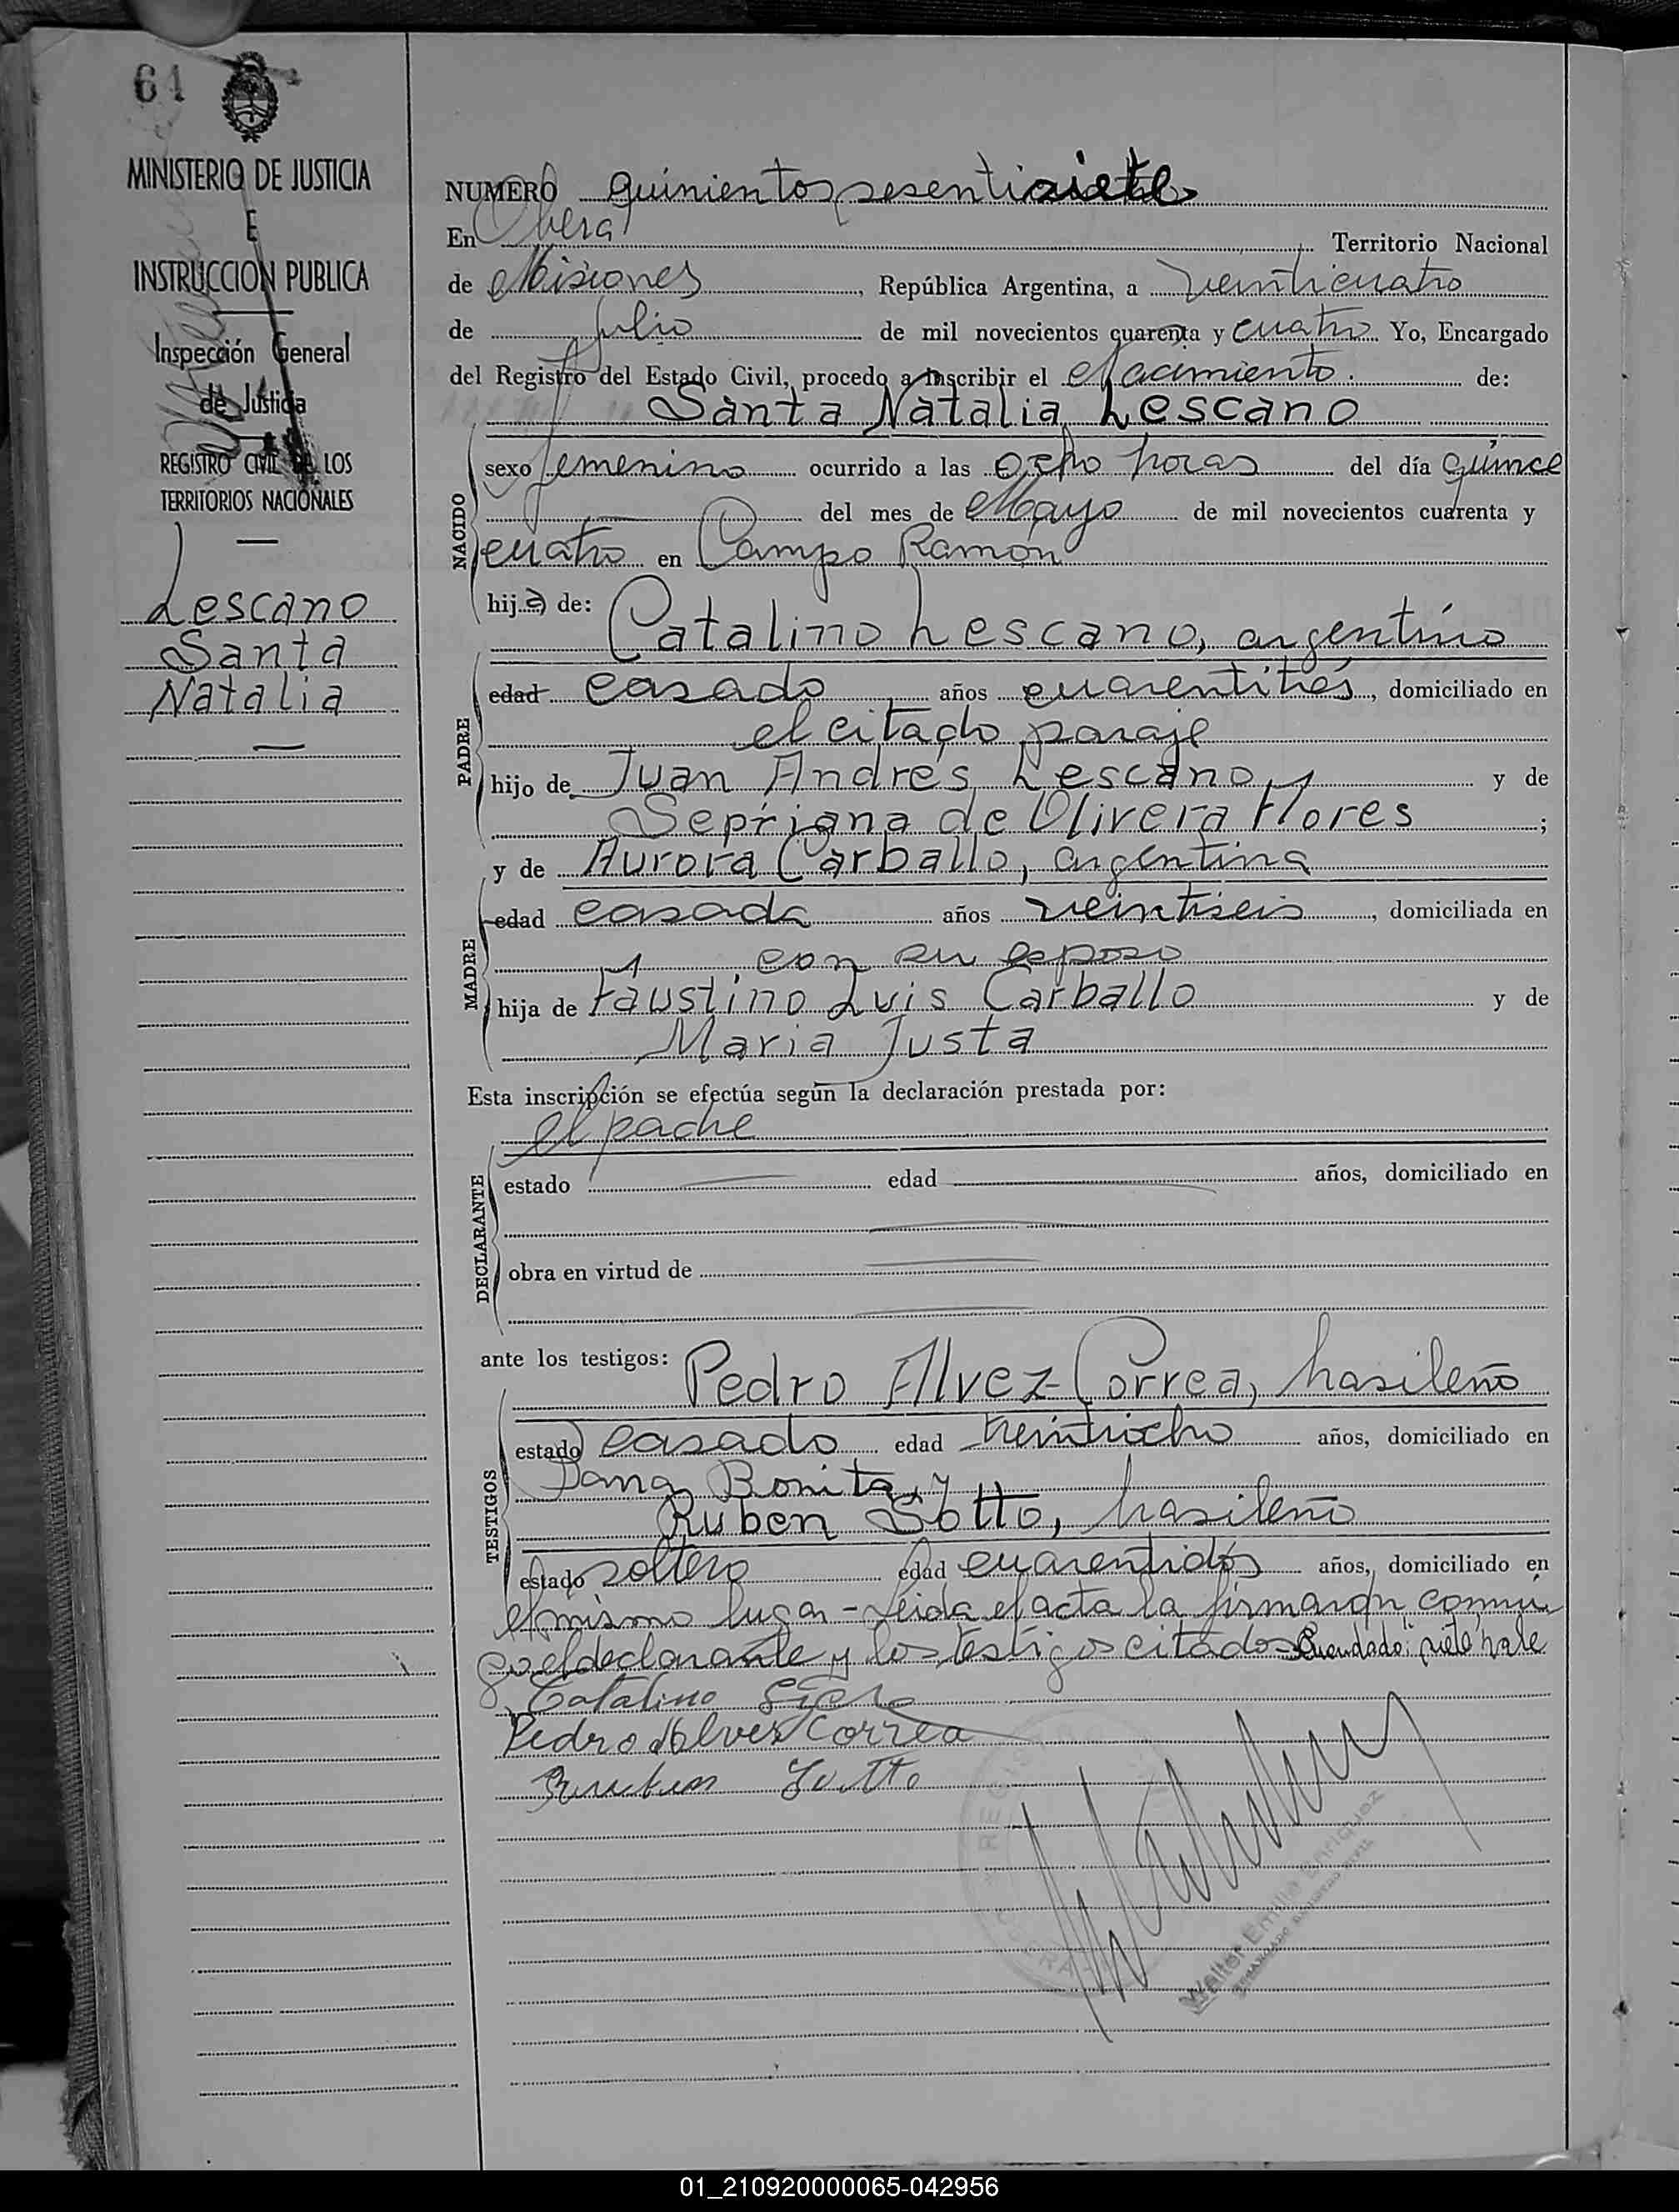 61
MINISTERIO DE JUSTICIA
E
INSTRUCCION PUBLICA
Inspección General
de Justicia
REGISTRO CIVIL DE LOS
TERRITORIOS NACIONALES
Lescano
Santa
Natalia
NUMERO quinientos sesentisiete
En Oberá Territorio Nacional
de Misiones, República Argentina, a veinticuatro
de Julio de mil novecientos cuarenta y cuatro Yo, Encargado
del Registro del Estado Civil, procedo a inscribir el Nacimiento. de:
Santa Natalia Lescano
NACIDO
sexo femenino ocurrido a las ocho horas del día quince
del mes de Mayo de mil novecientos cuarenta y
cuatro en Campo Ramón
hija de:
Catalino Lescano, argentino
PADRE
edad casado años cuarentitrés, domiciliado en
el citado paraje
hijo de Juan Andrés Lescano y de
Sepriana de Olivera Flores ;
y de Aurora Carballo, argentina
MADRE
edad casada años veintiseis, domiciliada en
con su esposo
hija de Faustino Luis Carballo y de
Maria Justa
Esta inscripción se efectúa según la declaración prestada por:
el padre
DECLARANTE
estado edad años, domiciliado en
obra en virtud de
ante los testigos:
Pedro Alvez Correa, brasileño
TESTIGOS
estado casado edad treintiocho años, domiciliado en
Bonita, y
Ruben Sotto, brasileño
estado soltero edad cuarentidós años, domiciliado en
el mismo lugar - Leida el acta la firmaron conmi
go el declarante y los testigos citados - Enmendado: "siete" vale
Catalino
Pedro Alves Correa
Ruben Sotto
REGIS
OBERA
Walter Emilio Enriquez
ENCARGADO REGISTRO CIVIL
01_210920000065-042956